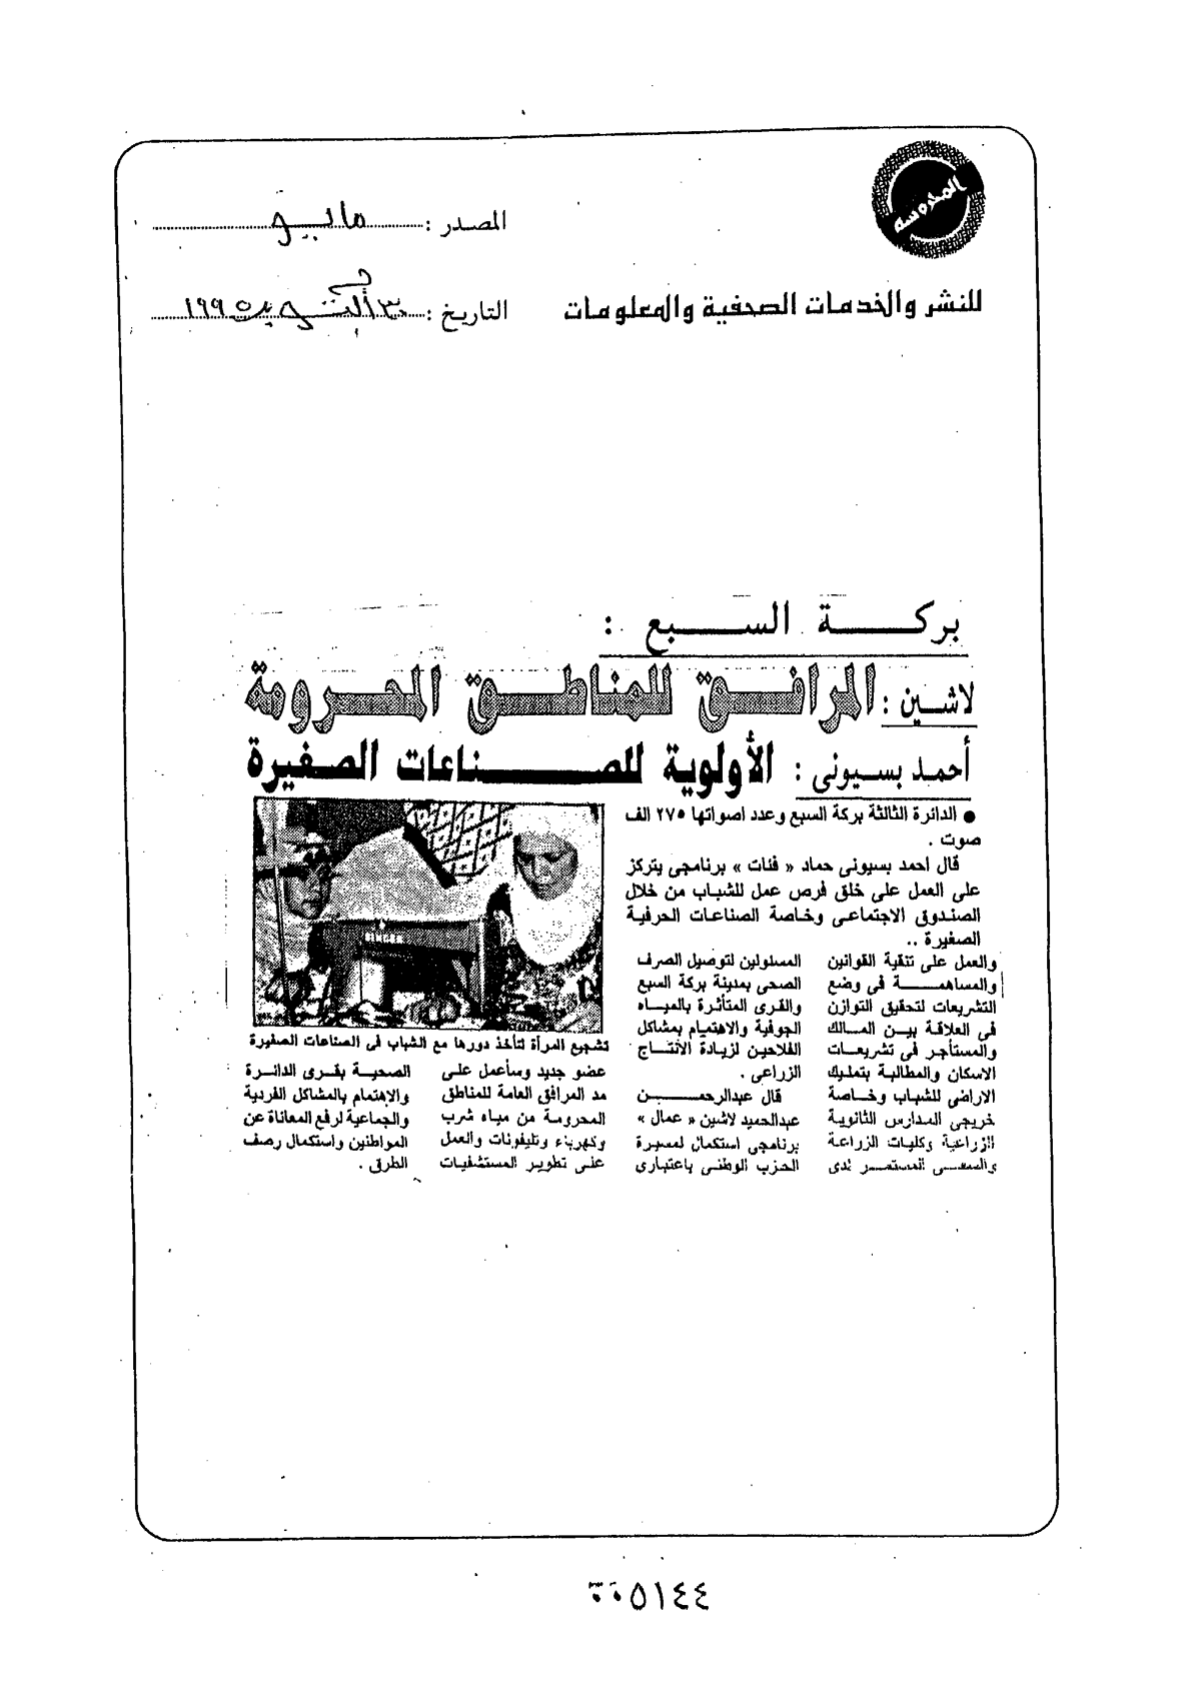 المحروسة
المصدر : مايو
للنشر والخدمات الصحفية والمعلومات
التاريخ : ٣٠ أكتوبر ١٩٩٥
بركة السبع :
لاشين : المرافق للمناطق المحرومة
أحمد بسيونى : الأولوية للصناعات الصغيرة
● الدائرة الثالثة بركة السبع وعدد اصواتها ٢٧٥ الف
صوت .
قال احمد بسيونى حماد « فئات » برنامجى يتركز
على العمل على خلق فرص عمل للشباب من خلال
الصندوق الاجتماعى وخاصة الصناعات الحرفية
الصغيرة ..
والعمل على تنقية القوانين
والمساهمة فى وضع
التشريعات لتحقيق التوازن
فى العلاقة بين المالك
والمستأجر فى تشريعات
الاسكان والمطالبة بتمليك
الاراضى للشباب وخاصة
خريجى المدارس الثانوية
الزراعية وكليات الزراعة
والسعى المستمر لدى
المسئولين لتوصيل الصرف
الصحى بمدينة بركة السبع
والقرى المتأثرة بالمياه
الجوفية والاهتمام بمشاكل
الفلاحين لزيادة الانتاج
الزراعى .
قال عبدالرحمن
عبدالحميد لاشين « عمال »
برنامجى استكمال لمسيرة
الحزب الوطنى باعتبارى
SINGER
تشجيع المرأة لتأخذ دورها مع الشباب فى الصناعات الصغيرة
عضو جديد وسأعمل على
مد المرافق العامة للمناطق
المحرومة من مياه شرب
وكهرباء وتليفونات والعمل
على تطوير المستشفيات
الصحية بقرى الدائرة
والاهتمام بالمشاكل الفردية
والجماعية لرفع المعاناة عن
المواطنين واستكمال رصف
الطرق .
٣٠٥١٤٤